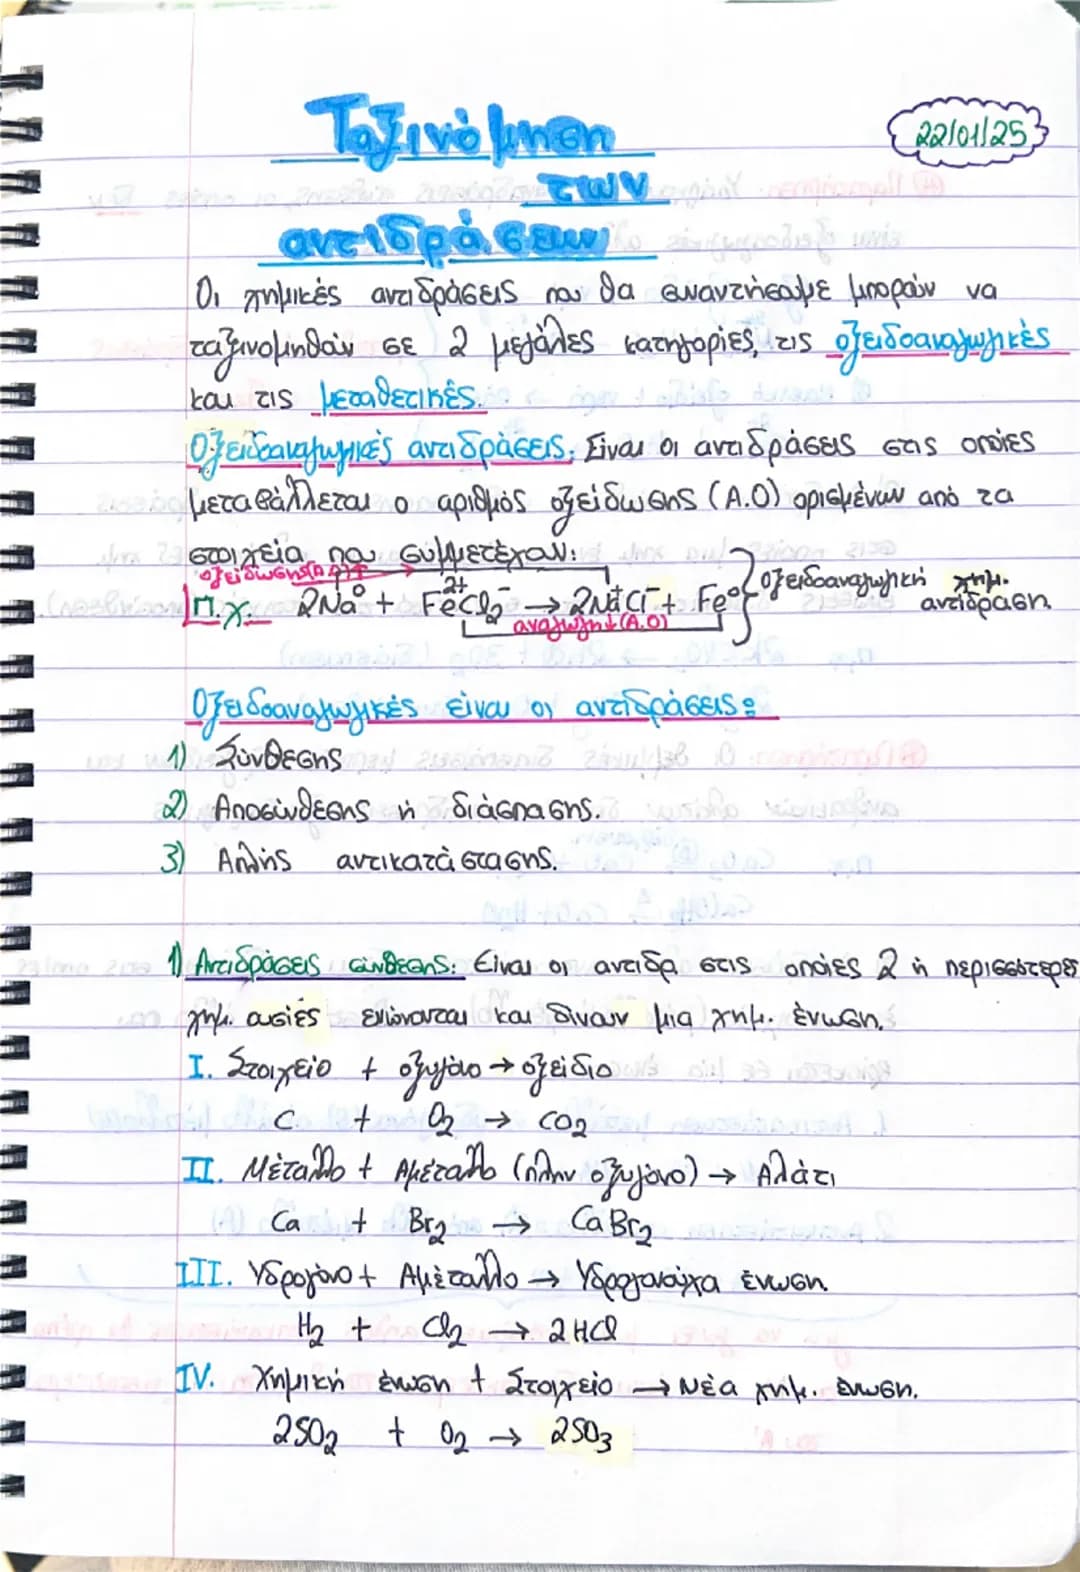 Ταξινόμηση
22/01/25
των
αντιδράσεων
Οι χημικές αντιδράσεις που θα συναντήσουμε μπορούν να
ταξινομηθούν σε 2 μεγάλες κατηγορίες, τις οξειδοαναγωγικές
και τις μεταθετικές.
Οξειδοαναγωγικές αντιδράσεις: Είναι οι αντιδράσεις στις οποίες
μεταβάλλεται ο αριθμός οξείδωσης (Α.Ο) ορισμένων από τα
στοιχεία που συμμετέχουν:
οξείδωση(Α.Ο)↑
Π.χ. 2Na⁰ + Fe²⁺Cl₂⁻ → 2Na⁺Cl⁻ + Fe⁰ } οξειδοαναγωγική χημ. αντίδραση.
αναγωγή↓(Α.Ο)
Οξειδοαναγωγικές είναι οι αντιδράσεις:
1) Σύνθεσης
2) Αποσύνθεσης ή διάσπασης.
3) Απλής αντικατάστασης.
1) Αντιδράσεις σύνθεσης: Είναι οι αντιδρ στις οποίες 2 ή περισσότερες
χημ. ουσίες ενώνονται και δίνουν μια χημ. ένωση.
I. Στοιχείο + οξυγόνο → οξείδιο
C + O₂ → CO₂
II. Μέταλλο + Αμέταλλο (πλην οξυγόνο) → Αλάτι
Ca + Br₂ → CaBr₂
III. Υδρογόνο + Αμέταλλο → Υδρογονούχα ένωση.
H₂ + Cl₂ → 2HCl
IV. Χημική ένωση + Στοιχείο → Νέα χημ. ένωση.
2SO₂ + O₂ → 2SO₃